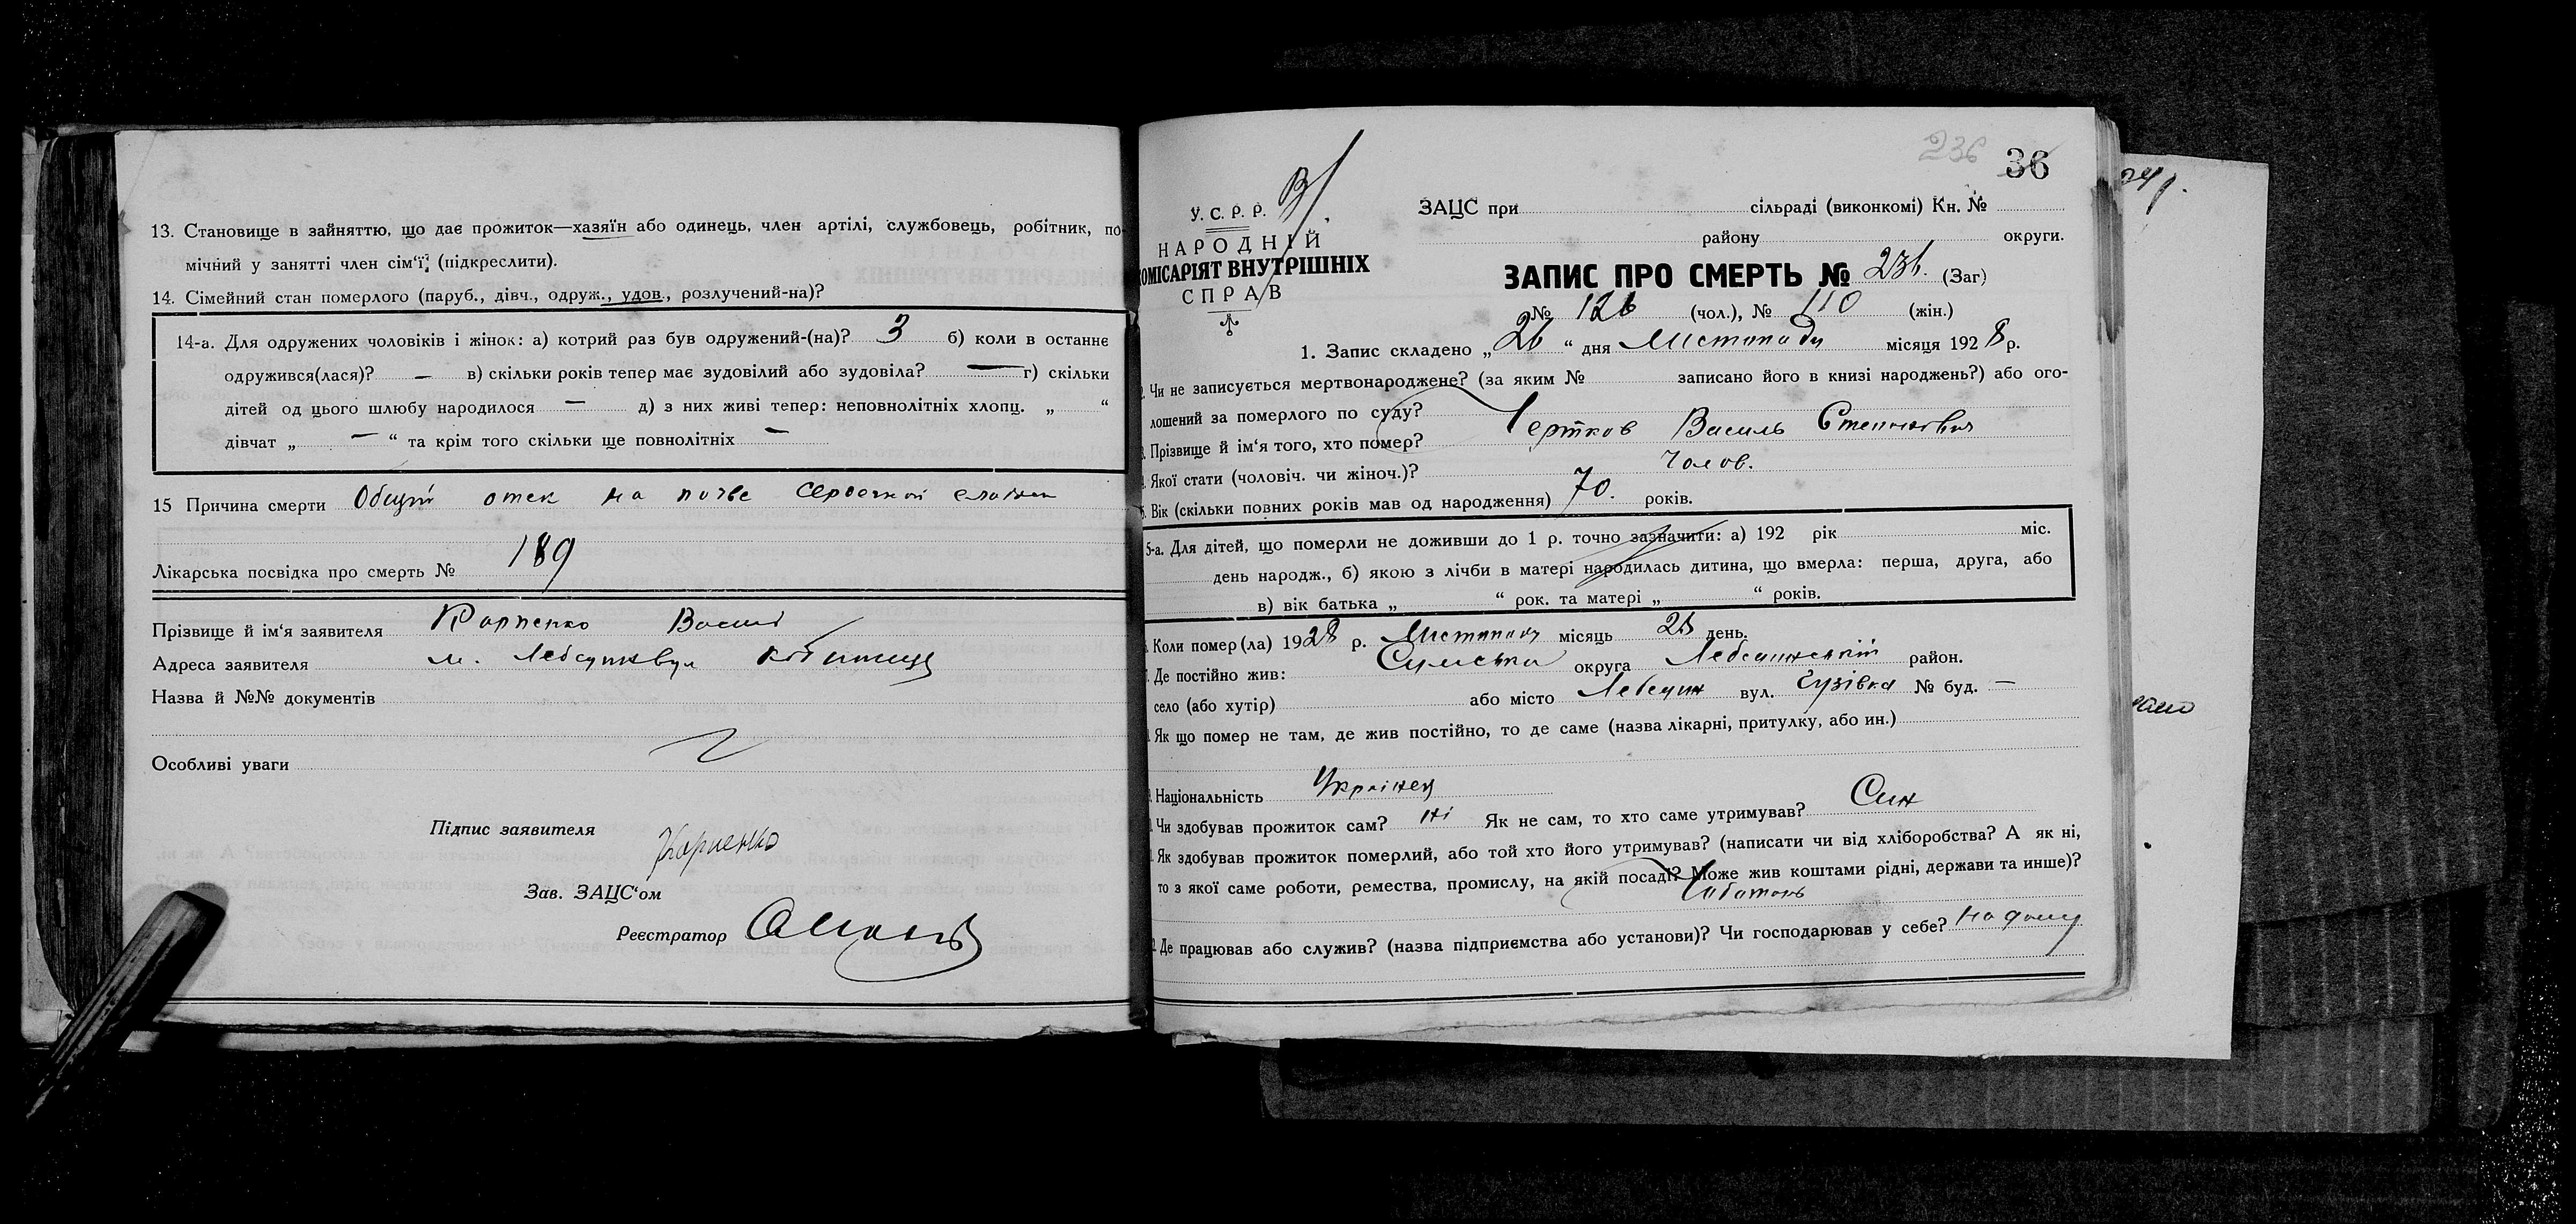 13. Становище в зайняттю, що дає прожиток—хазяїн або одинець, член артілі, службовець, робітник, по-
мічний у занятті член сім‘ї, (підкреслити).
14. Сімейний стан померлого (паруб., дівч., одруж., удов., розлучений-на)?
14-а. Для одружених чоловіків і жінок: а) котрий раз був одружений-(на)? 3 б) коли в останнє
одружився(лася)? — в) скільки років тепер має зудовілий або зудовіла? — г) скільки
дітей од цього шлюбу народилося — д) з них живі тепер: неповнолітніх хлопц. „ “
дівчат „ — “ та крім того скільки ще повнолітніх —
15 Причина смерти Общий отек на почве сердечной
Лікарська посвідка про смерть № 189
Прізвище й ім‘я заявителя Карпенко Василь
Адреса заявителя м. Лебедин вул
Назва й №№ документів
Особливі уваги
Підпис заявителя Карпенко
Зав. ЗАЦС‘ом
Реєстратор
236 36
У. С. Р. Р.
НАРОДНІЙ
КОМІСАРІЯТ ВНУТРІШНІХ
СПРАВ
ЗАЦС при сільраді (виконкомі) Кн. №
району округи.
ЗАПИС ПРО СМЕРТЬ № 236. (Заг)
№ 126 (чол.), № 110 (жін.)
1. Запис складено „ 26 “ дня Листопада місяця 1928 р.
Чи не записується мертвонароджене? (за яким № записано його в книзі народжень?) або ого-
лошений за померлого по суду?
Прізвище й ім‘я того, хто помер? Чертков Василь Степанович
Якої стати (чоловіч. чи жіноч.)? Чолов.
Вік (скільки повних років мав од народження) 70. років.
5-а. Для дітей, що померли не доживши до 1 р. точно зазначити: а) 192 рік міс.
день народж., б) якою з лічби в матері народилась дитина, що вмерла: перша, друга, або
в) вік батька „ “ рок. та матері „ “ років.
Коли помер(ла) 1928 р. Листопада місяць день.
Де постійно жив: Сумська округа Лебединський район.
село (або хутір) або місто Лебедин вул. Гузівка № буд. —
Як що помер не там, де жив постійно, то де саме (назва лікарні, притулку, або ин.)
Національність Українец
Чи здобував прожиток сам? ні Як не сам, то хто саме утримував? Син
Як здобував прожиток померлий, або той хто його утримував? (написати чи від хліборобства? А як ні,
то з якої саме роботи, ремества, промислу, на якій посаді? Може жив коштами рідні, держави та инше)?
Чоботарь
Де працював або служив? (назва підприємства або установи)? Чи господарював у себе? на дому